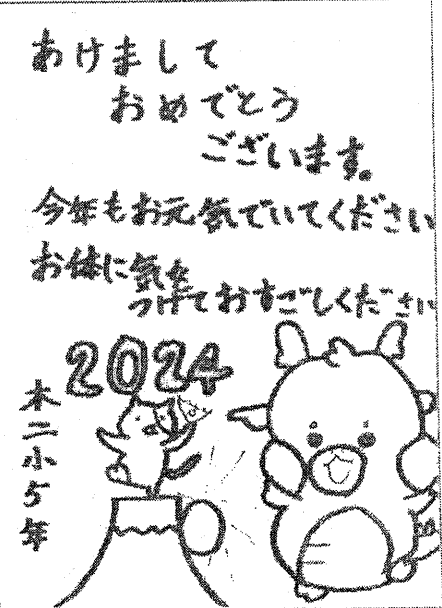 あけまして
おめでとう
ございます。
今年もお元気でいてください
お体に気を
つけておすごしください
2024
木二小5年